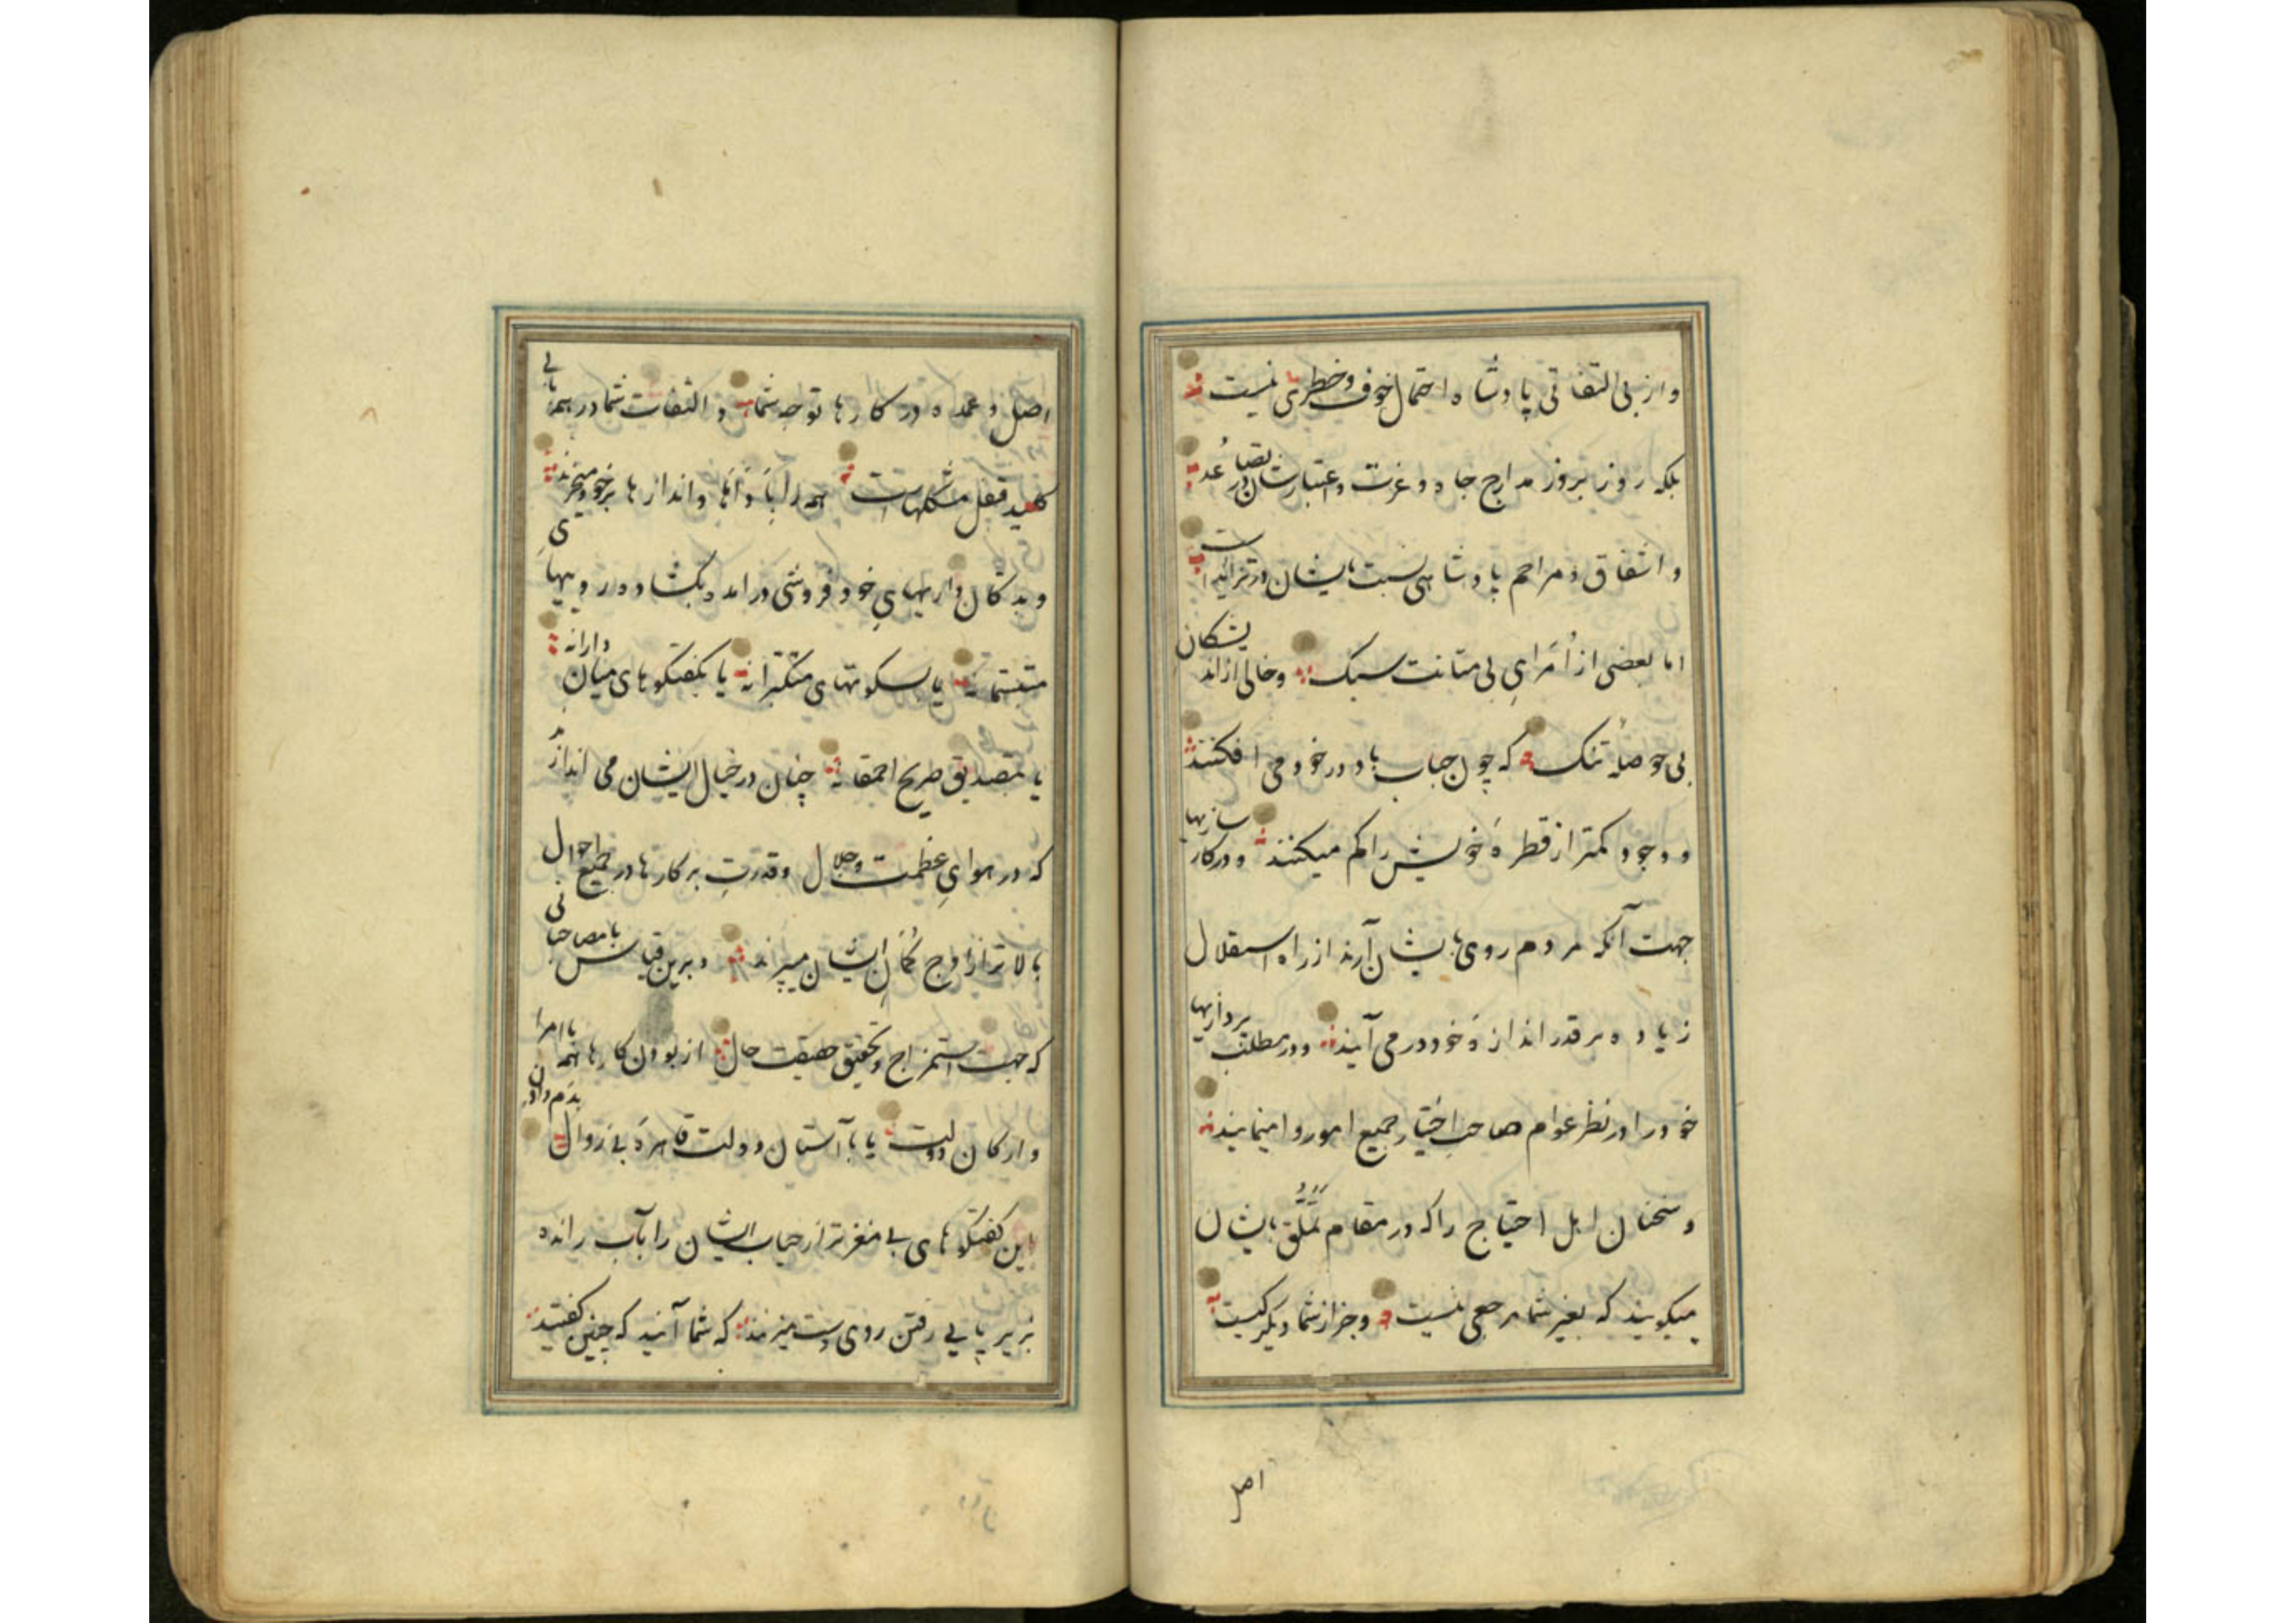 و از بی التفاتی پادشاه احتمال خوف و خطری نیست
بلکه روز بروز مدارج جاه و عزت و اعتبارشان در تصاعد
و اشفاق و مراحم پادشاهی نسبت بایشان در تزاید است
اما بعضی از اُمَرایِ بی متانت سبک و خالی از اندیشکان
بی حوصلۀ تنک که چون حباب باد در خود می افکنند
و وجود کمتر از قطرهٔ خویش را کم میکنند و در کارسازیها
جهت آنکه مردم روی بایشان آرند از راه استقلال
زیاده بر قدر اندازهٔ خود در می آیند و در مطلب پردازیها
خود را در نظر عوام صاحبِ اختیار جمیع امور وا مینمایند
و سخنان اهل احتیاج را که در مقام تَمَلُّق بایشان
میکویند که بغیر شما مرجعی نیست و جز از شما دیکر کیست
اصل
اصل و عمده در کارها توجه شما و التفات شما در همه بابی
کلید قفل مشکلهاست همه را بَاَداها و اندازها بر خود میخرند
و بدکان داریهایِ خود فروشی در امده بکشاده روییهایِ
متبسمانه یا بسکوتهای متکبرانه یا بکفتکوهای میان دارانه
یا بتصدیق صریح احمقانه چنان در خیال ایشان می اندازند
که در هوایِ عظمت و جلال و قدرتِ بر کارها در جمیع احوال
بالاتر از اوج کمان ایشان میپرند و برین قیاس با مصاحبانی
که جهت استمزاج و تحقیق حقیقت حال از بودن کارها همه با امرا
و ارکان دولت یا با آستان دولت قاهرهٔ بی زوال بدم دادن
این کفتکوهای بی مغزتر از حباب ایشان را بآب رانده
بزیر پایی رفتن روی دست میزنند که شما آنید که چنین کفتید